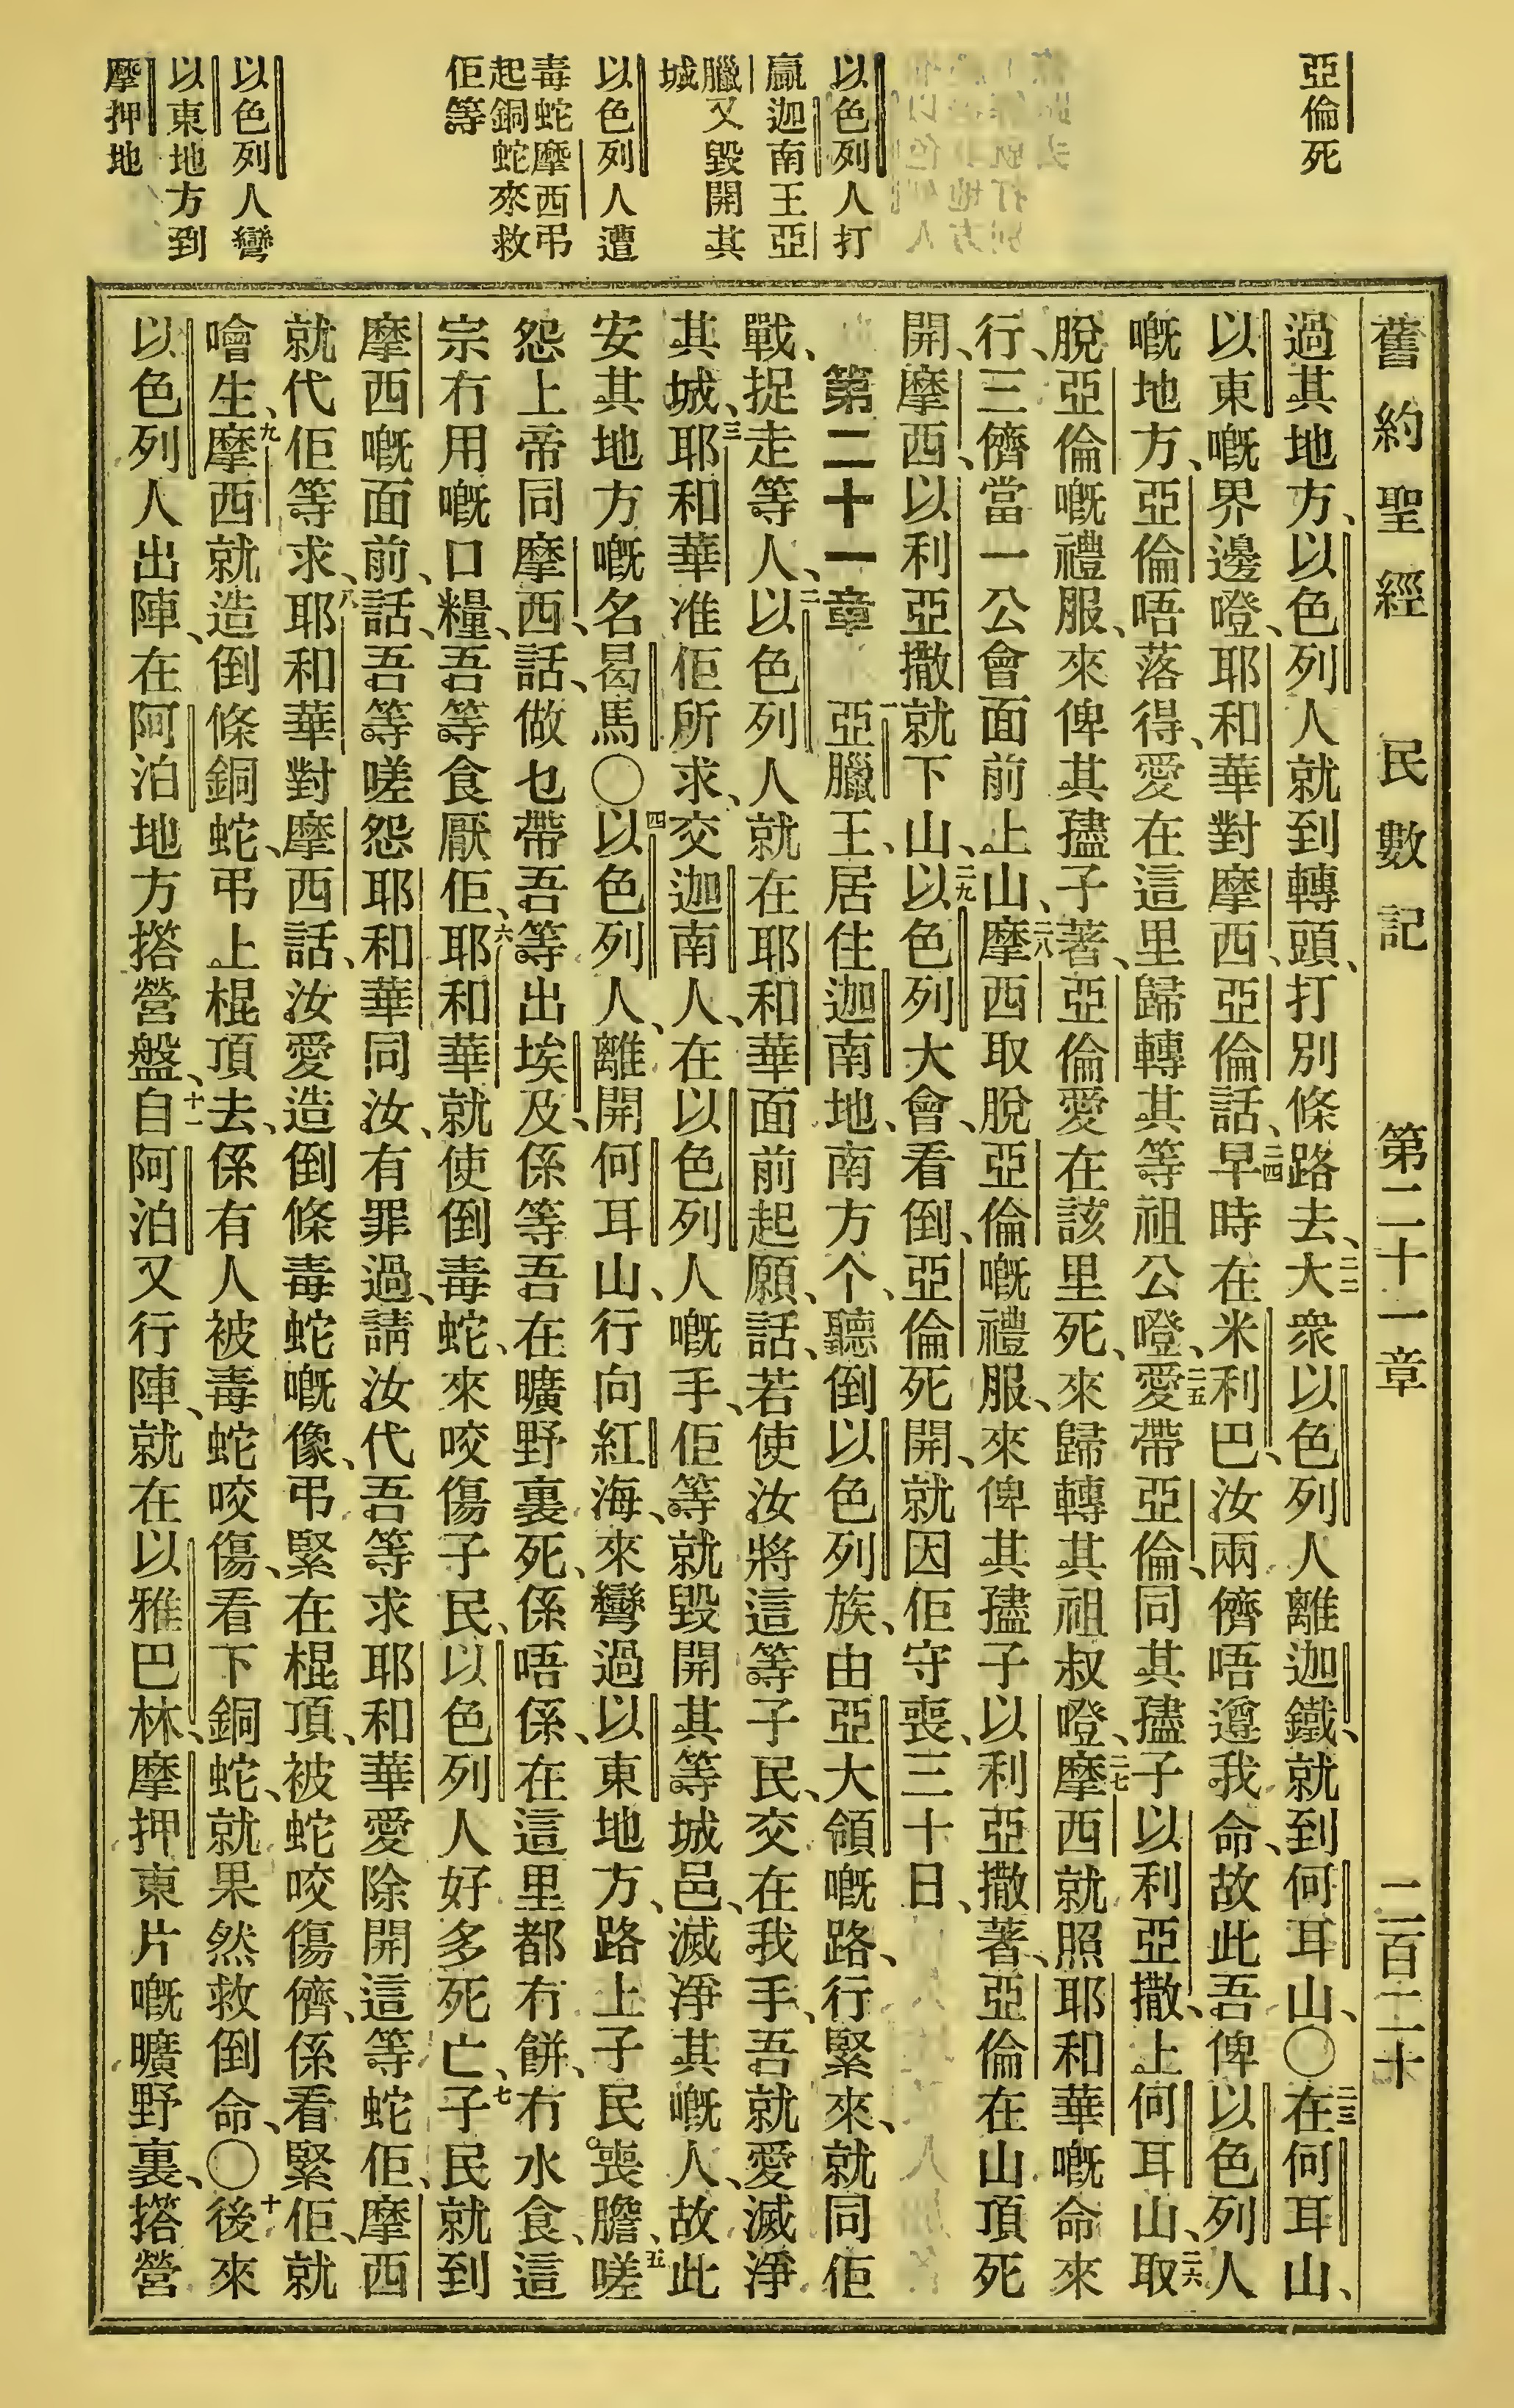 亞倫死
以色列人打
贏迦南王亞
臘又毀開其
城
以色列人遭
毒蛇摩西弔
起銅蛇來救
佢等
以色列人彎
以東地方到
摩押地
舊約聖經 民數記 第二十一章 二百二十
過其地方、以色列人就到轉頭、打別條路去、二二大眾以色列人離迦鐵、就到何耳山、〇二三在何耳山、
以東嘅界邊嶝、耶和華對摩西、亞倫話、二四早時在米利巴、汝兩儕唔遵我命、故此吾俾以色列人
嘅地方、亞倫唔落得、愛在這里歸轉其等祖公嶝、二五愛帶亞倫、同其孻子以利亞撒、上何耳山、二六取
脫亞倫嘅禮服、來俾其孻子著、亞倫愛在該里死、來歸轉其祖叔嶝、二七摩西就照耶和華嘅命來
行、三儕當一公會面前上山、二八摩西取脫亞倫嘅禮服、來俾其孻子以利亞撒著、亞倫在山頂死
開、摩西、以利亞撒就下山、二九以色列大會、看倒、亞倫死開、就因佢守喪、三十日、
第二十一章 一亞臘王、居住迦南地、南方个、聽倒以色列族、由亞大領嘅路、行緊來、就同佢
戰、捉走等人、二以色列人就在耶和華面前起願、話、若使汝將這等子民、交在我手、吾就愛滅淨
其城、三耶和華准佢所求、交迦南人、在以色列人嘅手、佢等就毀開其等城邑、滅淨其嘅人、故此
安其地方嘅名曷馬〇四以色列人、離開何耳山、行向紅海、來彎過以東地方、路上子民喪膽、五嗟
怨上帝同摩西、話、做乜帶吾等出埃及、係等吾在曠野裏死、係唔係、在這里都冇餅、冇水食、這
宗冇用嘅口糧、吾等食厭佢、六耶和華就使倒毒蛇、來咬傷子民、以色列人好多死亡、七子民就到
摩西嘅面前、話、吾等嗟怨耶和華同汝、有罪過、請汝代吾等求耶和華愛除開這等蛇佢、摩西
就代佢等求、八耶和華對摩西話、汝愛造倒條毒蛇嘅像、弔緊在棍頂、被蛇咬傷儕、係看緊佢、就
噲生、九摩西就造倒條銅蛇、弔上棍頂去、係有人被毒蛇咬傷、看下銅蛇、就果然救倒命、〇十後來
以色列人出陣、在阿泊地方搭營盤、十一自阿泊又行陣、就在以雅巴林、摩押東片嘅曠野裏、搭營